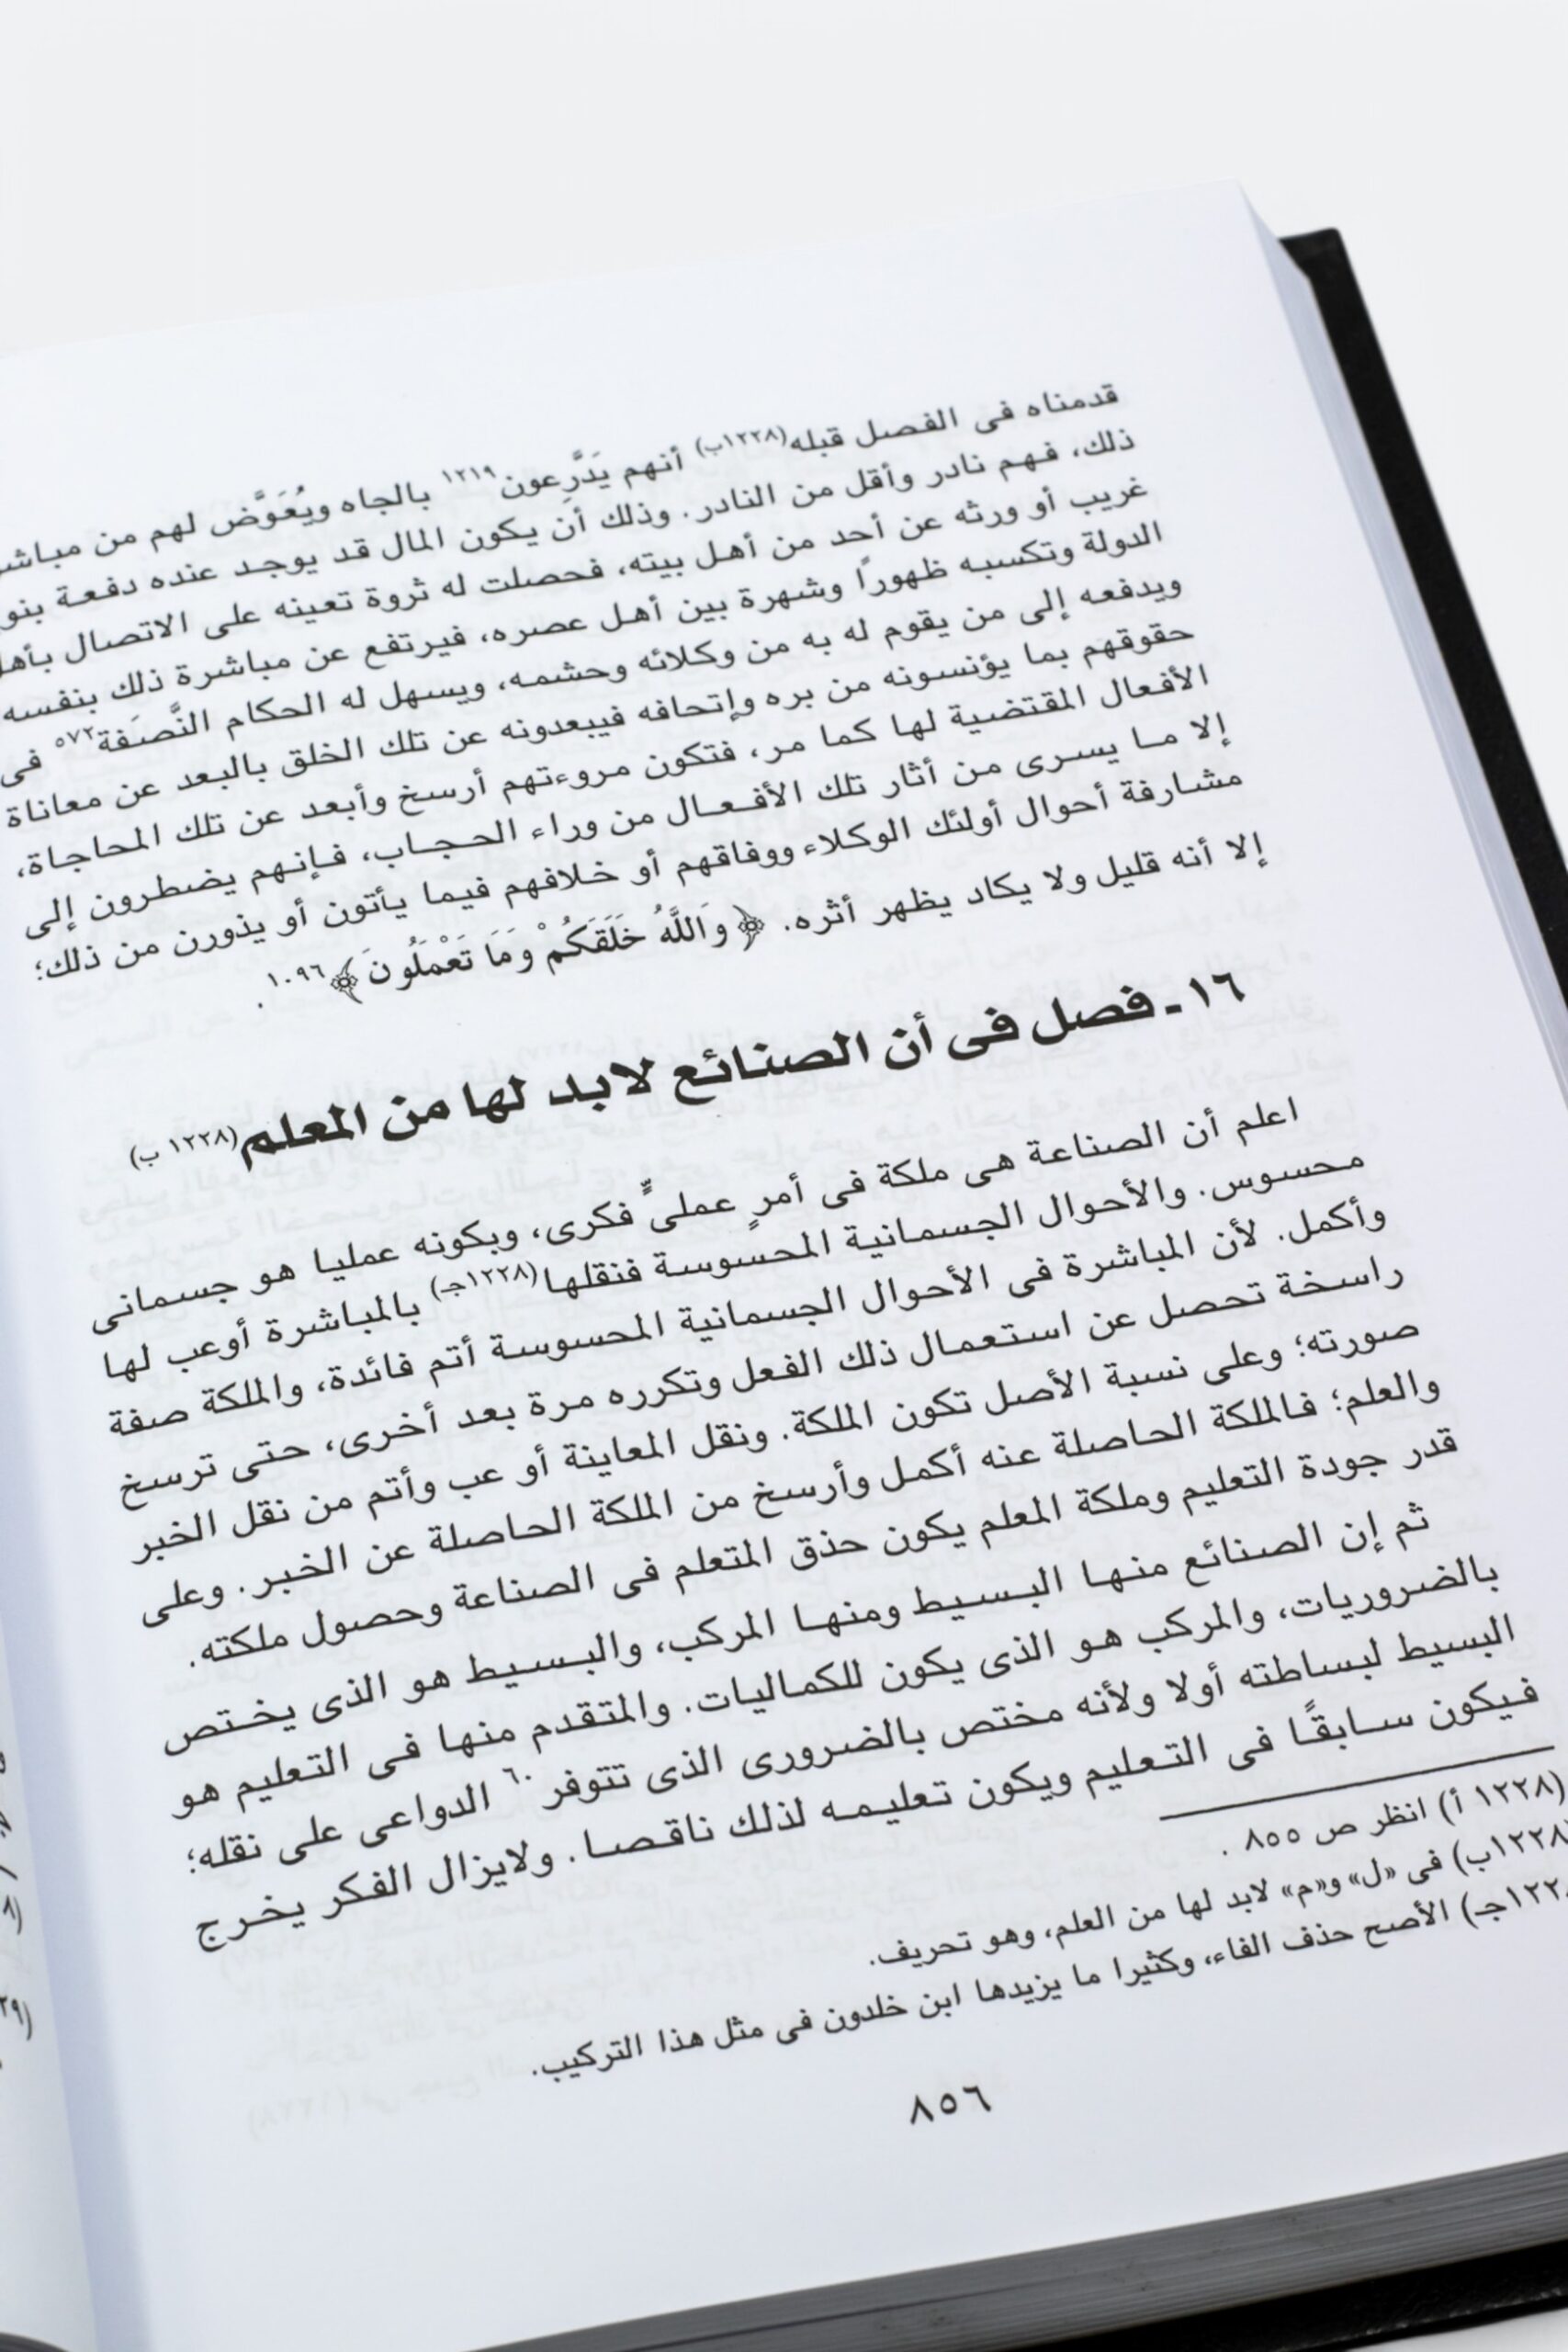 قدمناه فى الفصل قبله(١٢٢٨ب) أنهم يَدَّرِعون١٢١٩ بالجاه ويُعَوَّض لهم من
ذلك، فهم نادر وأقل من النادر. وذلك أن يكون المال قد يوجد عنده دفعة
غريب أو ورثه عن أحد من أهل بيته، فحصلت له ثروة تعينه على الاتصال بأهل
الدولة وتكسبه ظهورًا وشهرة بين أهل عصره، فيرتفع عن مباشرة ذلك بنفسه
ويدفعه إلى من يقوم له به من وكلائه وحشمه، ويسهل له الحكام النَّصَفة٥٧٢ فى
حقوقهم بما يؤنسونه من بره وإتحافه فيبعدونه عن تلك الخلق بالبعد عن معاناة
الأفعال المقتضية لها كما مر، فتكون مروءتهم أرسخ وأبعد عن تلك المحاجاة،
إلا ما يسرى من أثار تلك الأفعال من وراء الحجاب، فإنهم يضطرون إلى
مشارفة أحوال أولئك الوكلاء ووفاقهم أو خلافهم فيما يأتون أو يذورن من ذلك؛
إلا أنه قليل ولا يكاد يظهر أثره. ﴿وَاللَّهُ خَلَقَكُمْ وَمَا تَعْمَلُونَ﴾١٠٩٦.
١٦ - فصل فى أن الصنائع لابد لها من المعلم(١٢٢٨ ب)
اعلم أن الصناعة هى ملكة فى أمرٍ عملىٍّ فكرى، وبكونه عمليا هو جسمانى
محسوس. والأحوال الجسمانية المحسوسة فنقلها(١٢٢٨جـ) بالمباشرة أوعب لها
وأكمل. لأن المباشرة فى الأحوال الجسمانية المحسوسة أتم فائدة، والملكة صفة
راسخة تحصل عن استعمال ذلك الفعل وتكرره مرة بعد أخرى، حتى ترسخ
صورته؛ وعلى نسبة الأصل تكون الملكة. ونقل المعاينة أو عب وأتم من نقل الخبر
والعلم؛ فالملكة الحاصلة عنه أكمل وأرسخ من الملكة الحاصلة عن الخبر. وعلى
قدر جودة التعليم وملكة المعلم يكون حذق المتعلم فى الصناعة وحصول ملكته.
ثم إن الصنائع منها البسيط ومنها المركب، والبسيط هو الذى يختص
بالضروريات، والمركب هو الذى يكون للكماليات. والمتقدم منها فى التعليم هو
البسيط لبساطته أولا ولأنه مختص بالضرورى الذى تتوفر٦٠ الدواعى على نقله؛
فيكون سابقًا فى التعليم ويكون تعليمه لذلك ناقصا. ولايزال الفكر يخرج
(١٢٢٨ أ) انظر ص ٨٥٥ .
١٢٢٨ب) فى «ل» و«م» لابد لها من العلم، وهو تحريف.
١٢٢٨جـ) الأصح حذف الفاء، وكثيرا ما يزيدها ابن خلدون فى مثل هذا التركيب.
٨٥٦